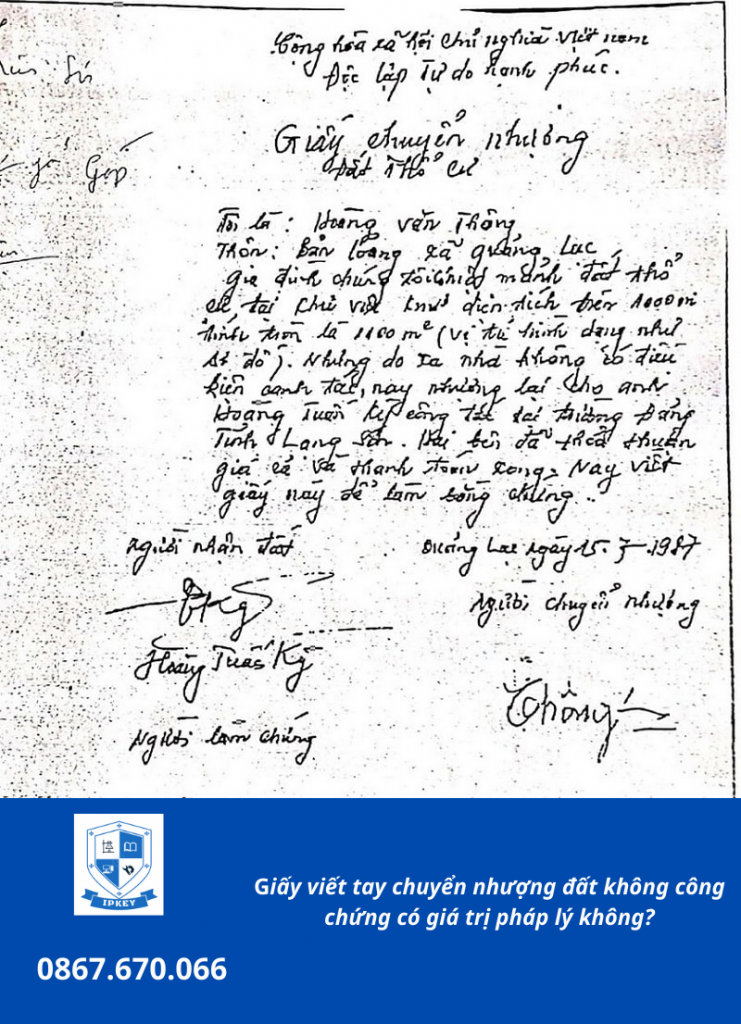 Cộng hòa xã hội chủ nghĩa Việt nam
Độc lập Tự do hạnh phúc.
Giấy chuyển nhượng
Đất Thổ cư
Tôi là : Hoàng văn Thông
Thôn : Bản loỏng xã quảng Lạc
gia đình chúng tôi có mảnh đất thổ
cư tại khu vực diện tích trên 1000 m
hình tròn là 1100 m² (vị trí hình dạng như
sơ đồ). Nhưng do xa nhà không có điều
kiện canh tác, nay nhượng lại cho anh
Hoàng Tuấn Kỳ công tác tại trường Đảng
Tỉnh Lạng Sơn. Hai bên đã thoả thuận
giá cả và thanh toán xong. Nay viết
giấy này để làm bằng chứng..
Người nhận đất
Quảng Lạc ngày 15. 7 - 1987
Người chuyển nhượng
Hoàng Tuấn Kỳ
Thông
Người làm chứng
IPKEY
Giấy viết tay chuyển nhượng đất không công
chứng có giá trị pháp lý không?
0867.670.066